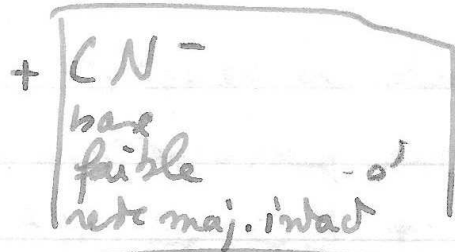 + CN⁻
base
faible
reste maj. intact